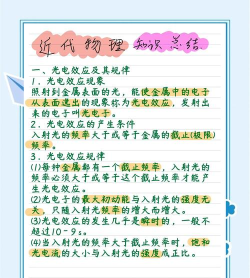 近代物理知识总结
一、光电效应及其规律
1．光电效应现象
照射到金属表面的光，能使金属中的电子
从表面逸出的现象称为光电效应，发射出
来的电子叫光电子。
2．光电效应的产生条件
入射光的频率大于或等于金属的截止(极限)
频率。
3．光电效应规律
(1)每种金属都有一个截止频率，入射光的
频率必须大于或等于这个截止频率才能产
生光电效应。
(2)光电子的最大初动能与入射光的强度无
关，只随入射光频率的增大而增大。
(3)光电效应的发生几乎是瞬时的，一般不
超过10－9s。
(4)当入射光的频率大于截止频率时，饱和
光电流的大小与入射光的强度成正比。